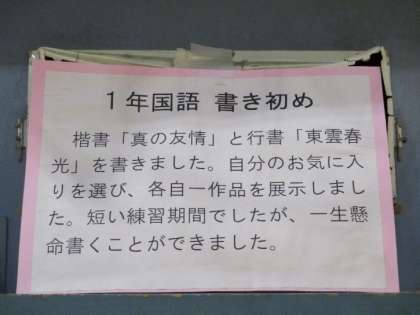 1年国語 書き初め
楷書「真の友情」と行書「東雲春
光」を書きました。自分のお気に入
りを選び、各自一作品を展示しまし
た。短い練習期間でしたが、一生懸
命書くことができました。